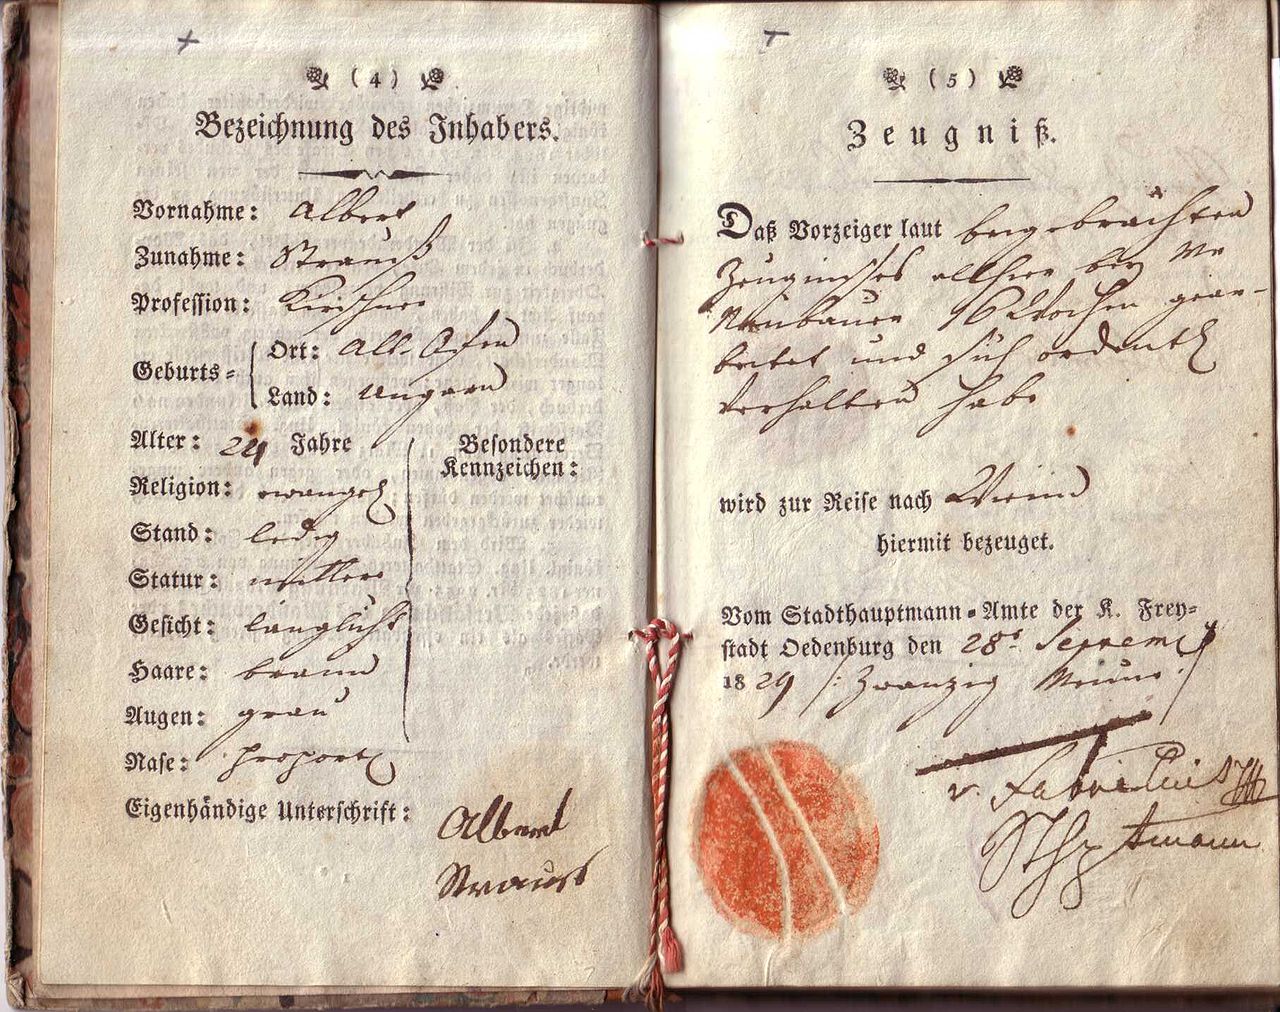 (4)
Bezeichnung des Inhabers.
Vornahme: Albert
Zunahme: Strauß
Profession: Kirschner
Geburts= Ort: Alt Ofen
Land: Ungarn
Alter: 24 Jahre
Besondere
Kennzeichen:
Religion: evangel
Stand: ledig
Statur: mittere
Gesicht: langlicht
Haare: braun
Augen: grau
Nase: proport
Eigenhändige Unterschrift: Albert
Strauss
(5)
Zeugniß.
Daß Vorzeiger laut beygebrachten
Zeugnisses allhier bey
Neubauer 16 Wochen gear-
beitet und sich ordentl
verhalten habe
wird zur Reise nach Wien
hiermit bezeuget.
Vom Stadthauptmann=Amte der K. Frey=
stadt Oedenburg den 28t Septemb
1829 /: Zwanzig Neun :/
v. Fabricius
Sthptmann